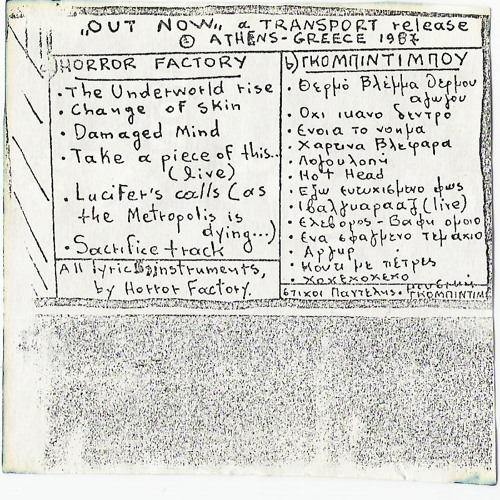 „OUT NOW„ a TRANSPORT release
© ATHENS-GREECE 1987
HORROR FACTORY
• The Underworld rise
• Change of skin
• Damaged Mind
• Take a piece of this...
(live)
• Lucifer's calls (as
the Metropolis is
dying...)
• Sacrifice track
All lyrics, instruments,
by Horror Factory.
b) ΓΚΟΜΠΙΝΤΙΜΠΟΥ
• Θερμό Βλέμμα θερμου
αγωγου
• Οχι ικανο δεντρο
• Ενοια το νοημα
• Χαρτινα Βλέφαρα
• Hot Head
• Εξω ευτυχισμενο φως
• (live)
• Ελεβορος - Βαφη ομοιο
• Ενα σφαγμενο τεμαχιο
• Αργυρ
• με πέτρες
• Χοχεχοχεχο
στιχοι Παντελης •
ΓΚΟΜΠΙΝΤΙΜ